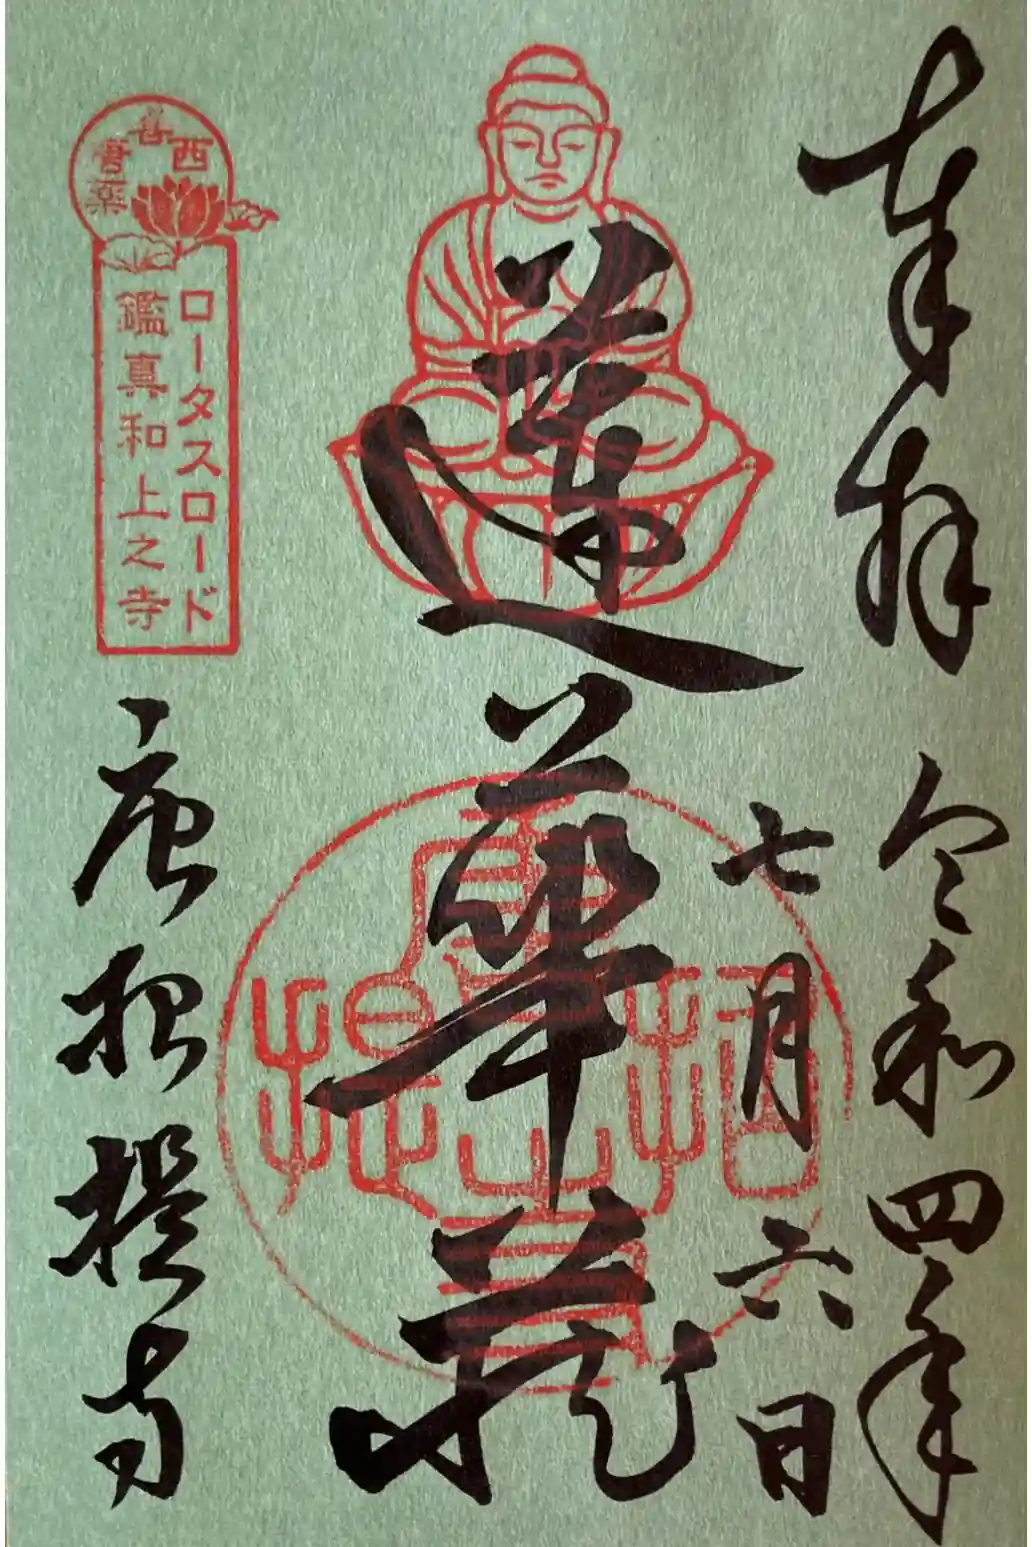 奉拝
令和四年
七月六日
蓮華蔵
西喜唐薬
ロータスロード
鑑真和上之寺
唐招提寺